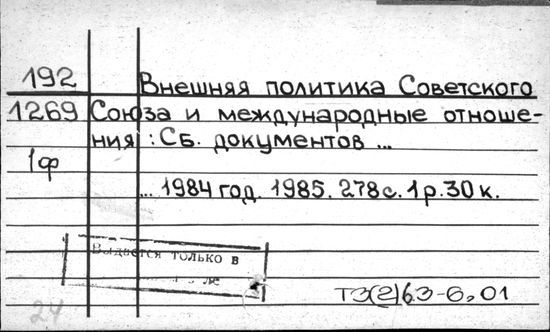 192 Внешняя политика Советского
1269 Союза и международные отноше-
ния : Сб. документов ...
1ф
... 1984 год. 1985. 278с. 1р.30к.
Выдается только в
ле
Т3(2)63-6,01
24